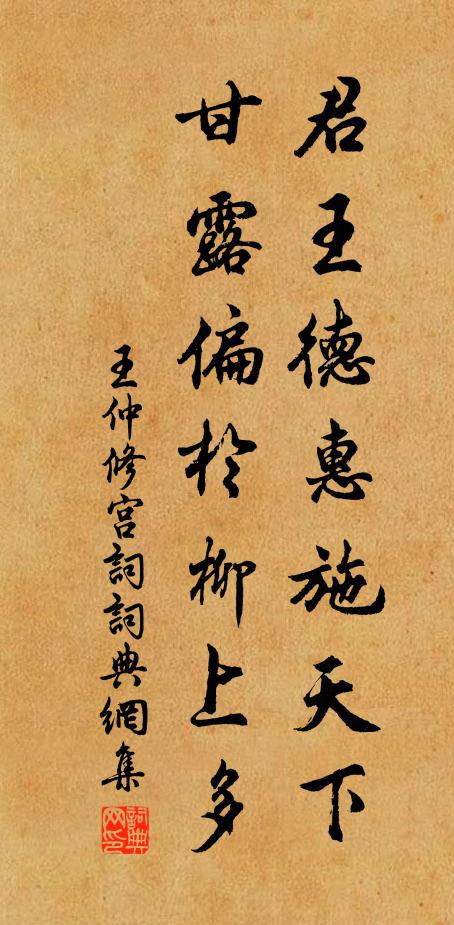 君王德惠施天下
甘露偏於柳上多
王仲修宫詞詞典網集
詞典网印